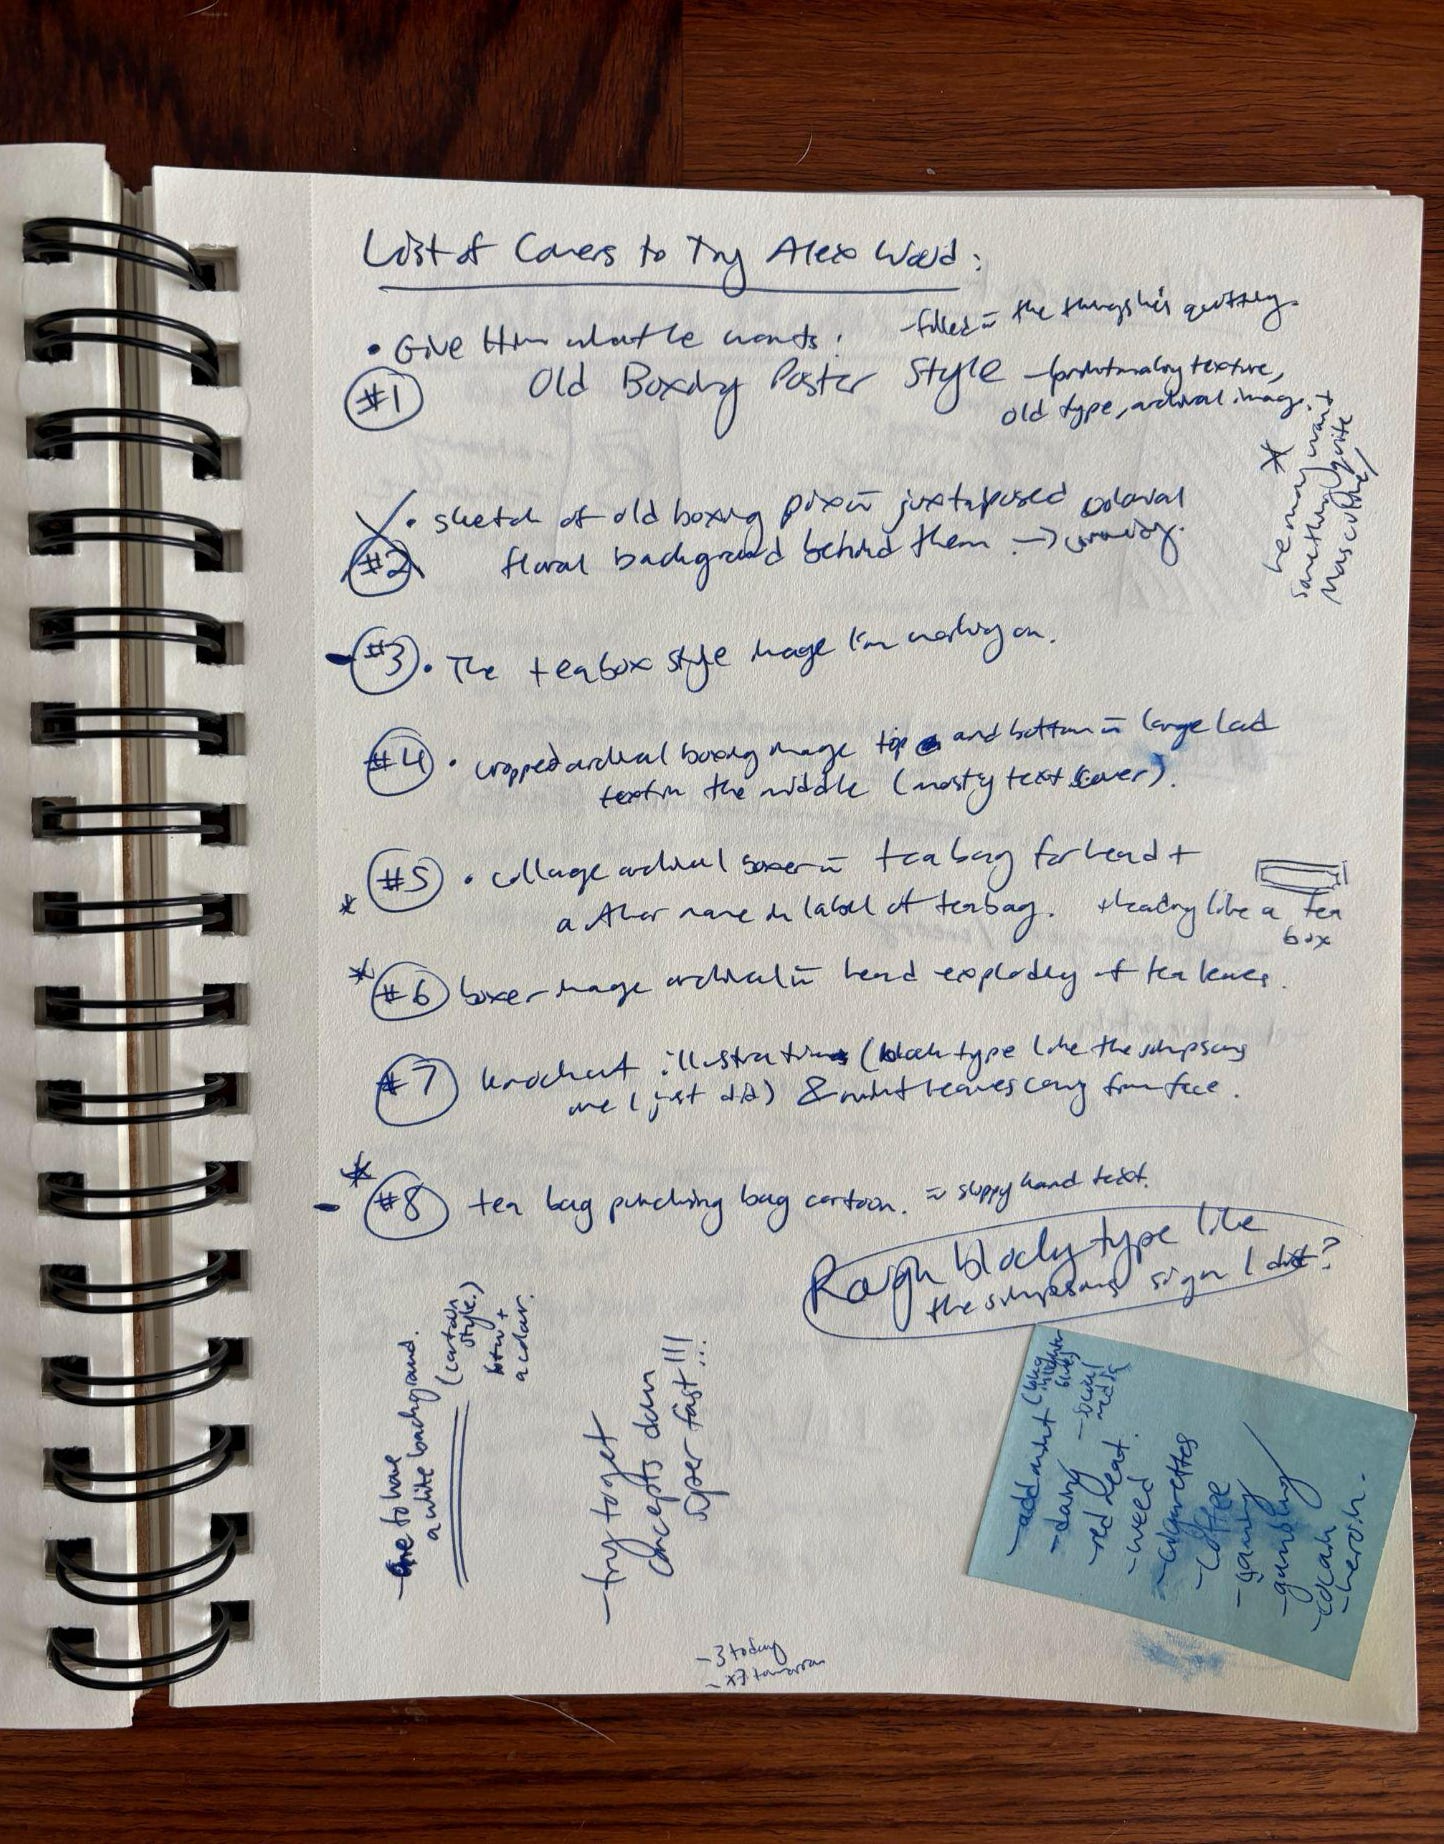 List of Covers to Try Alex Wood:
• Give Him what he wants. - filled = the things he's quitting.
#1 Old Boxing Poster Style - texture,
old type, archival image.
* he may want
something quite
masculine
#2 • sketch of old boxing juxtaposed
floral background behind them →
- #3 • The teabox style image I'm working on.
#4 • cropped archival boxing image top and bottom = large
text in the middle (mostly text cover).
* #5 • collage archival boxer = tea bag for head +
author name in label of teabag. heading like a tea
box
* #6 boxer image archival = head exploding of tea leaves.
#7 knockout illustration (block type like the simpsons
one I just did) & mint leaves coming from face.
*
- #8 tea bag punching bag cartoon. = sloppy hand text.
Rough blocky type like
the simpsons sign I did?
- one to have
a white background.
(cartoon
style.)
b+w +
a color.
- try to get
concepts down
super fast!!!...
- add mint
- dairy
- red meat.
- weed
- cigarettes
- coffee
- gambling
- heroin.
- 3 today
- EX tomorrow